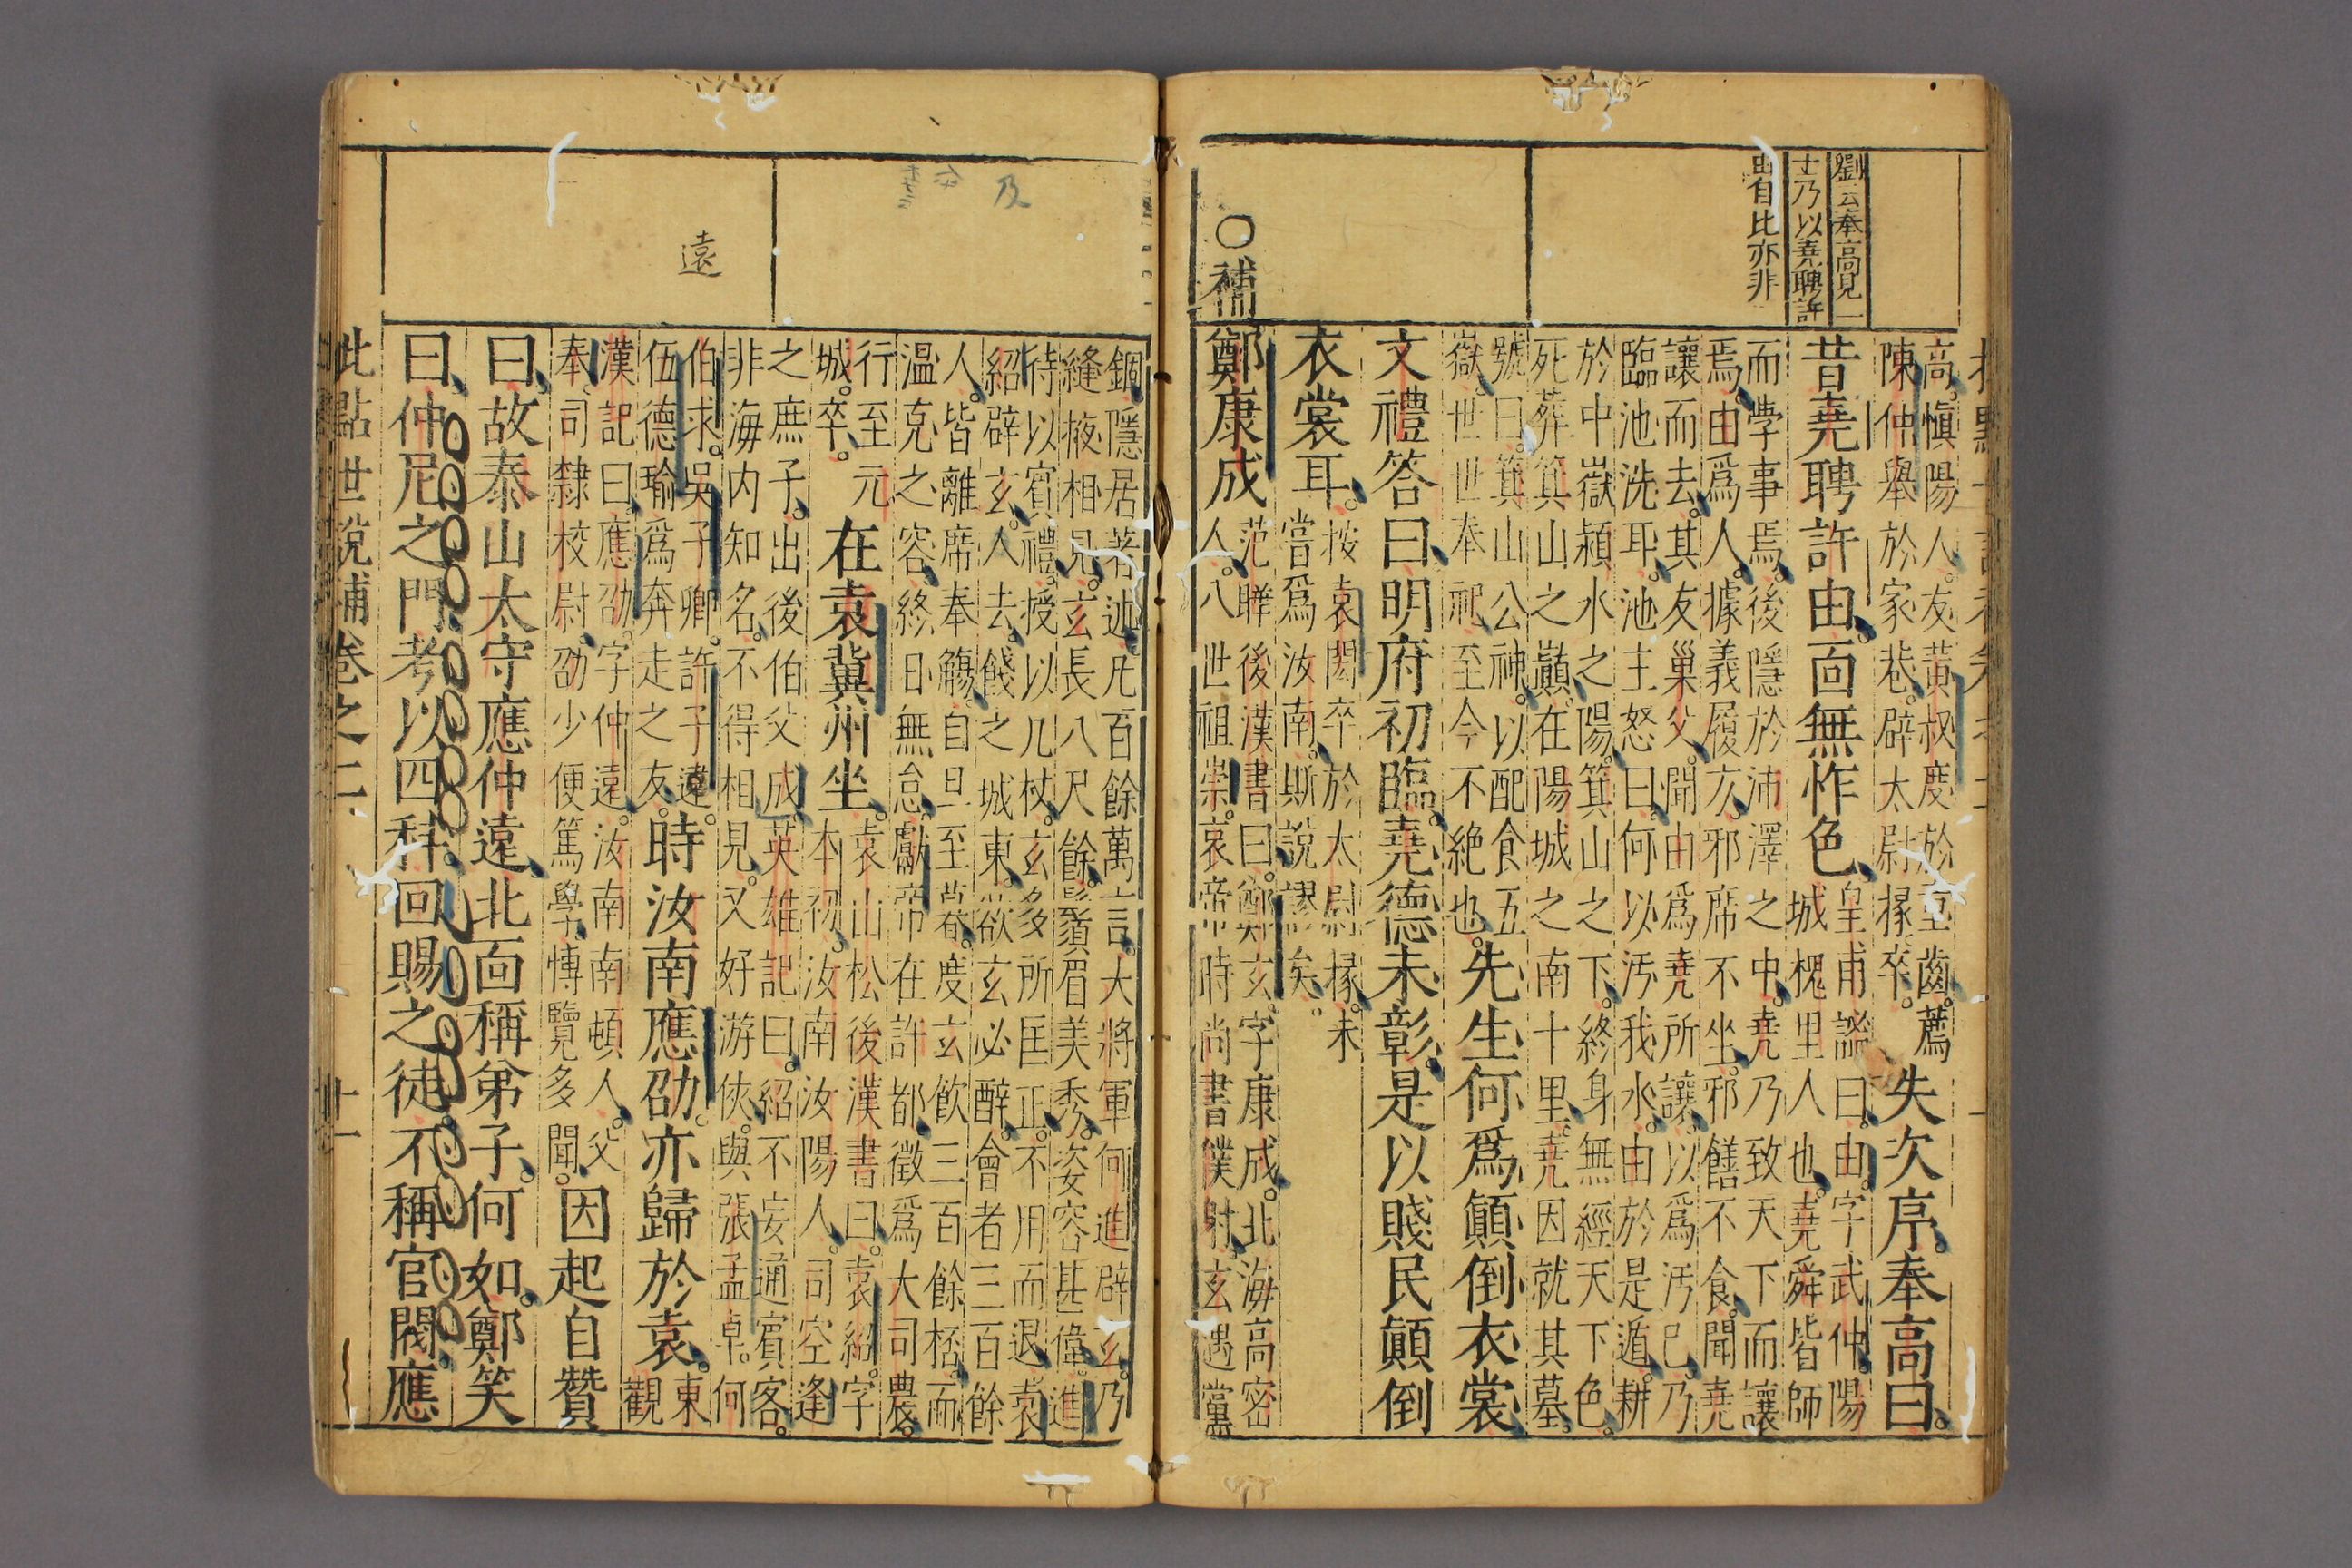 劉云奉高見一
士乃以堯聘許
由自比亦非
高愼陽人友黃叔度於童齒薦
陳仲舉於家巷辟太尉掾卒
失次序奉高曰
昔堯聘許由面無怍色
皇甫謐曰由字武仲陽
城槐里人也堯舜皆師
而學事焉後隱於沛澤之中堯乃致天下而讓
焉由爲人據義履方邪席不坐邪饍不食聞堯
讓而去其友巢父聞由爲堯所讓以爲汚已乃
臨池洗耳池主怒曰何以汚我水由於是遁耕
於中嶽潁水之陽箕山之下終身無經天下色
死葬箕山之巓在陽城之南十里堯因就其墓
號曰箕山公神以配食五
嶽世世奉祀至今不絶也
先生何爲顚倒衣裳
文禮答曰明府初臨堯德未彰是以賤民顚倒
衣裳耳
按袁閎卒於太尉掾未
嘗爲汝南斯說謬矣
〇補
鄭康成
范曄後漢書曰鄭玄字康成北海高密
人八世祖崇哀帝時尚書僕射玄遇黨
錮隱居著述凡百餘萬言大將軍何進辟玄乃
縫掖相見玄長八尺餘鬚眉美秀姿容甚偉進
待以賓禮授以几杖玄多所匡正不用而退袁
紹辟玄人去餞之城東欲玄必醉會者三百餘
人皆離席奉觴自旦至暮度玄飮三百餘桮而
溫克之容終日無怠獻帝在許都徵爲大司農
行至元
城卒
在袁冀州坐
袁山松後漢書曰袁紹字
本初汝南汝陽人司空逢
之庶子出後伯父成英雄記曰紹不妄通賓客
非海内知名不得相見又好游俠與張孟卓何
伯求吳子卿許子遠
伍德瑜爲奔走之友
時汝南應劭亦歸於袁
東
觀
漢記曰應劭字仲遠汝南南頓人父
奉司隸校尉劭少便篤學博覽多聞
因起自贊
曰故泰山太守應仲遠北面稱弟子何如鄭笑
曰仲尼之門考以四科回賜之徒不稱官閥應
批點世說補卷之二
十一
遠
及